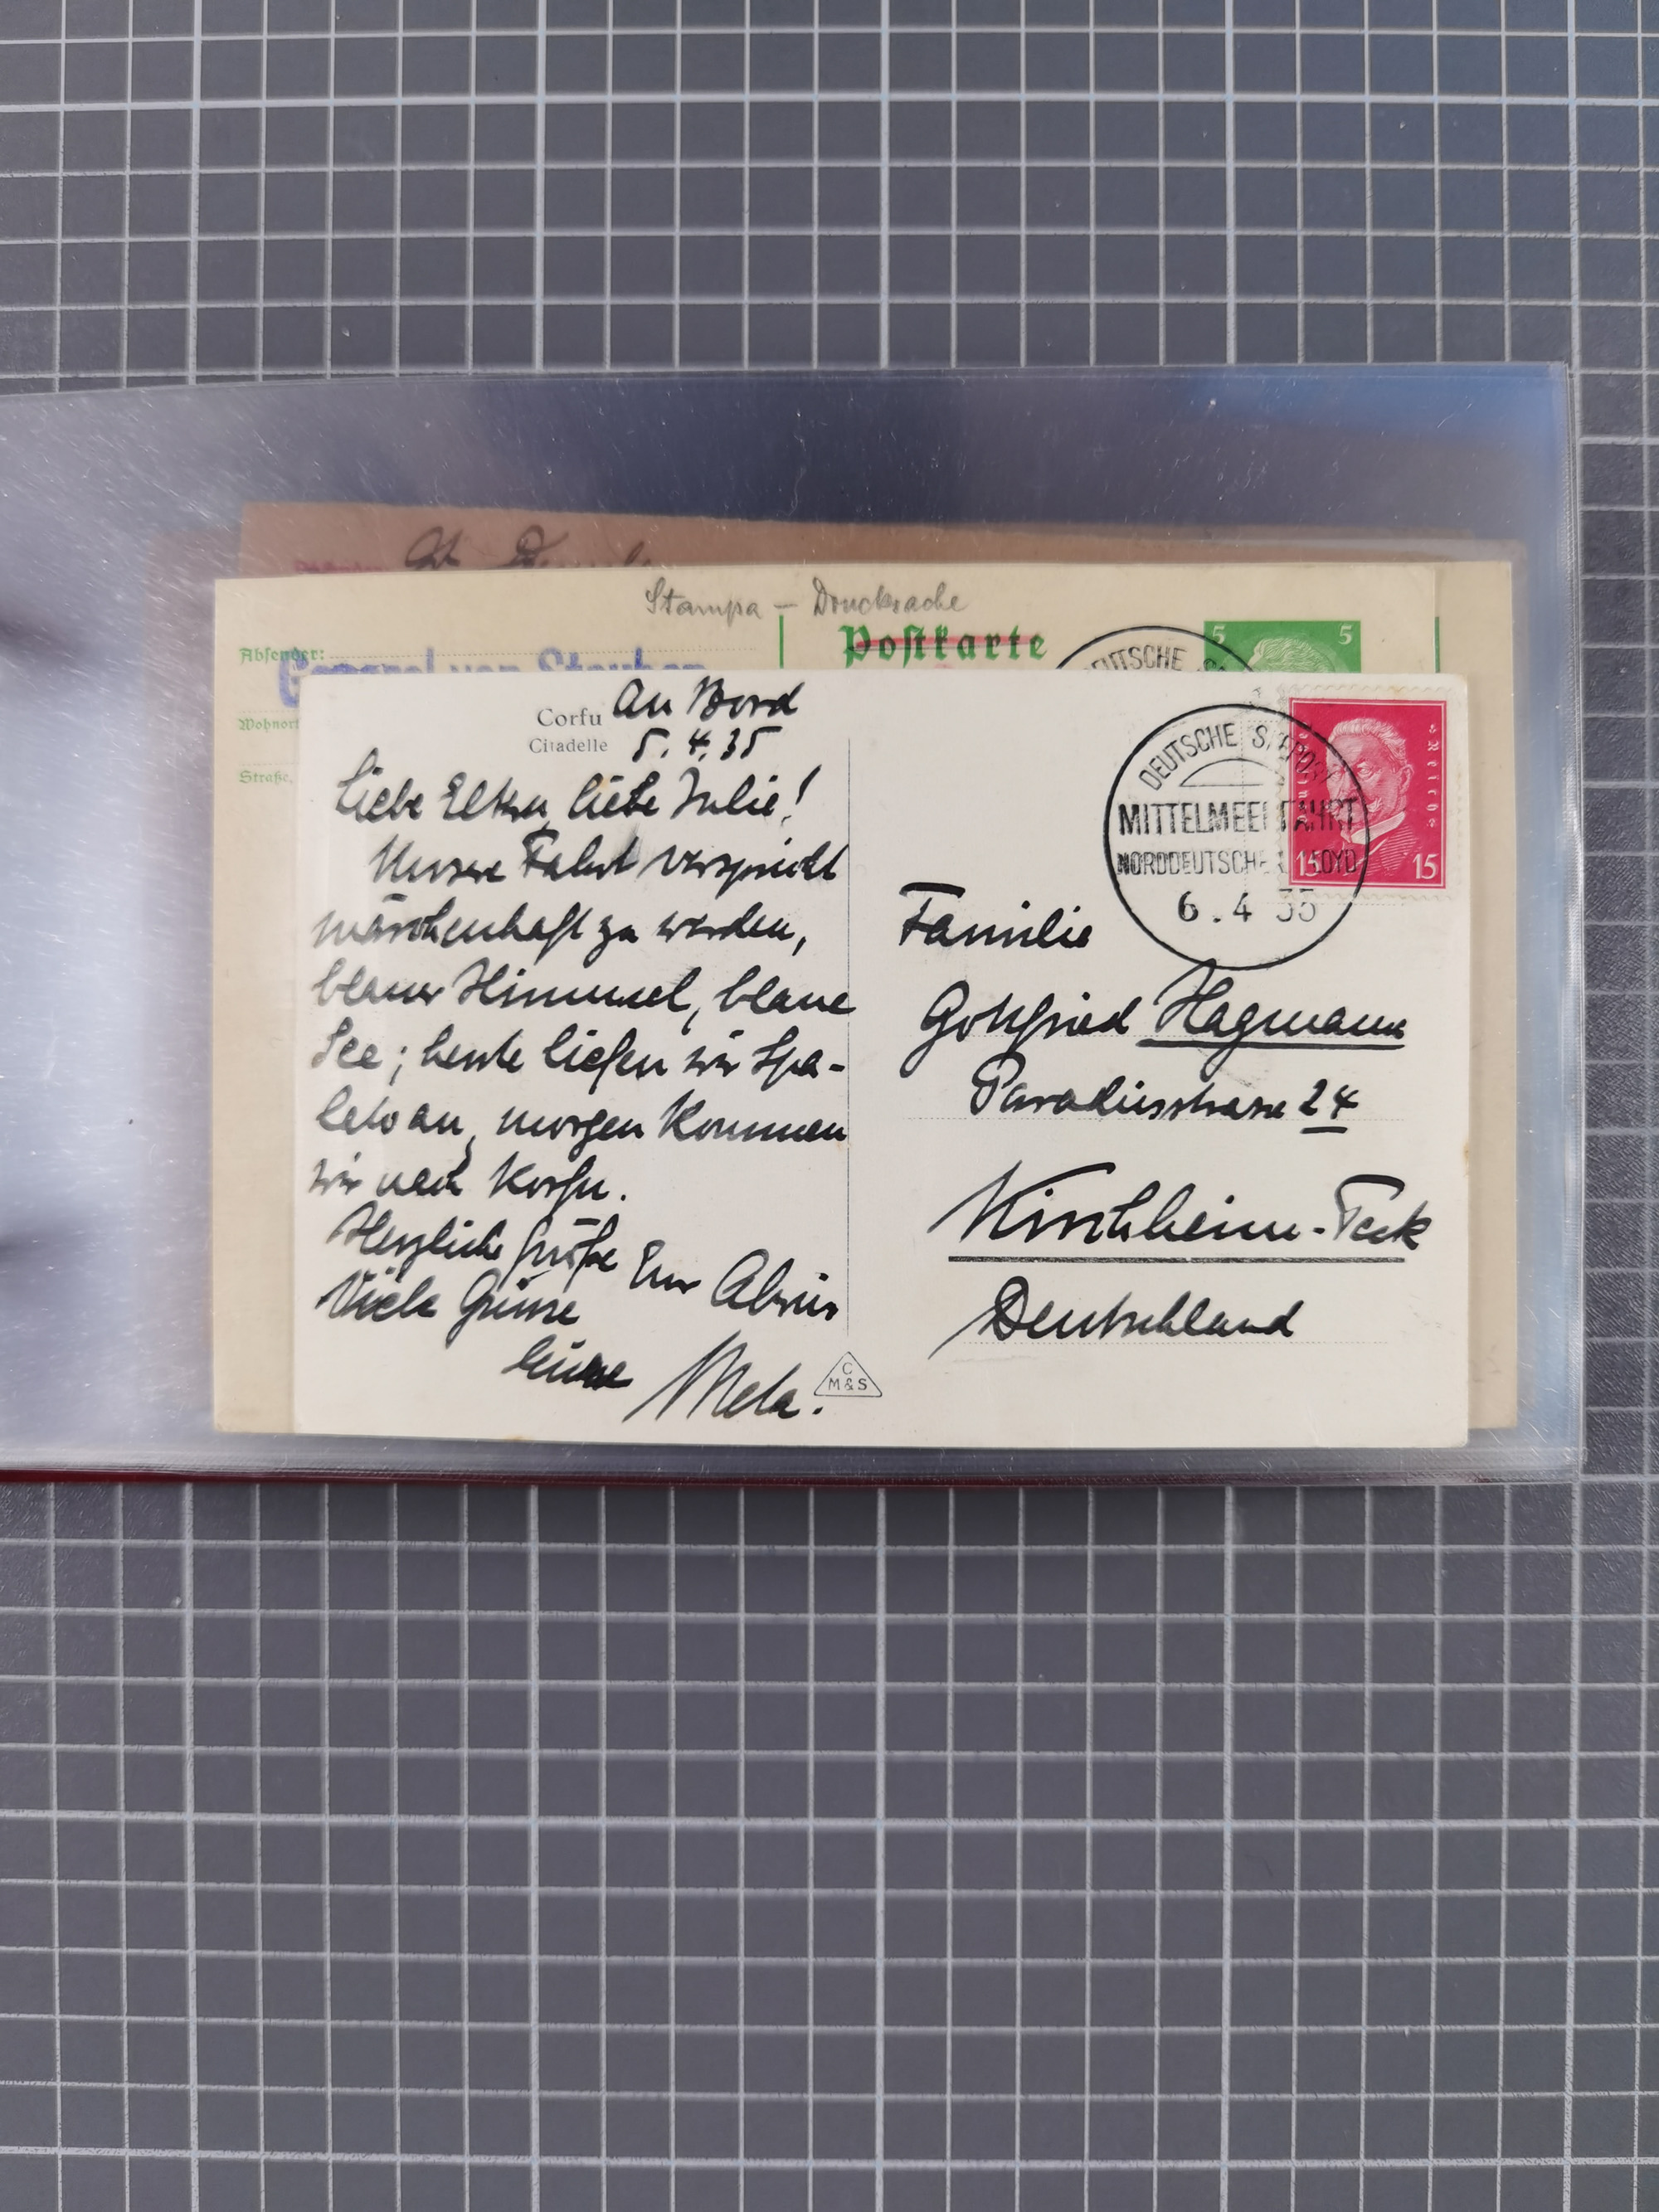 Stampa – Drucksache
Postkarte
Absender:
General von Steuben
Wohnort
Straße,
5 5
DEUTSCHE
Corfu
Citadelle
An Bord
5.4.35
Liebe Eltern, liebe Julie!
Unsere Fahrt verspricht
märchenhaft zu werden,
blauer Himmel, blaue
See; heute liefen wir Spa-
lato an, morgen kommen
wir nach Korfu.
Herzliche Grüße Euer
Viele Grüsse
Eure Meta.
C
M & S
DEUTSCHE SEEPOST
MITTELMEERFAHRT
NORDDEUTSCHER LLOYD
6.4 35
Deutsches Reich
15 15
Familie
Gottfried Hagmann
Paradiesstrasse 24
Kirchheim-Teck
Deutschland